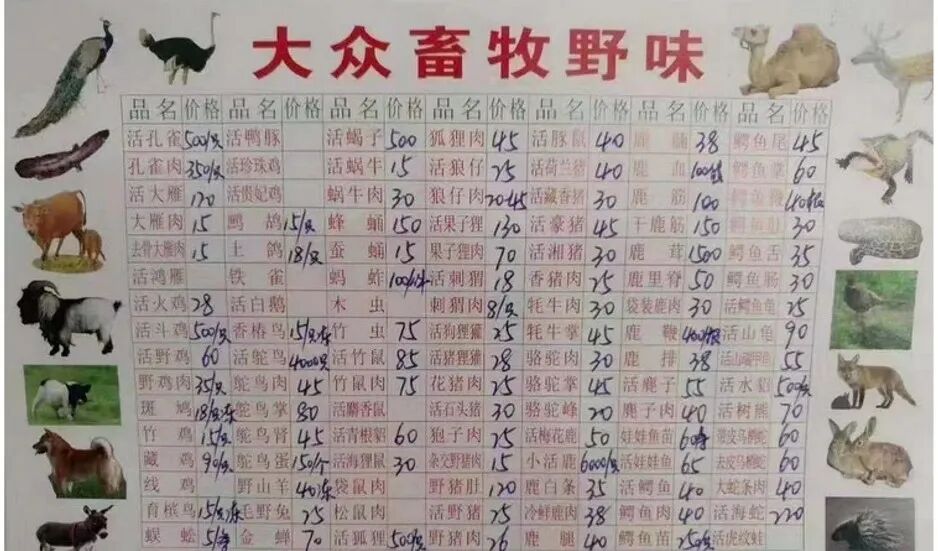 大众畜牧野味
品名 价格 品名 价格 品名 价格 品名 价格 品名 价格 品名 价格 品名 价格
活孔雀 500/只 活鸭豚 活蝎子 500 狐狸肉 45 活豚鼠 40 鹿 38 鳄鱼尾 45
孔雀肉 350/只 活珍珠鸡 活蜗牛 15 活狼仔 25 活荷兰猪 40 鹿血 鳄鱼掌 60
活大雁 120 活贵妃鸡 蜗牛肉 30 狼仔肉 20-45 活藏香猪 30 鹿筋 100 鳄鱼
大雁肉 15 鹧鸪 15/只 蜂蛹 150 活果子狸 130 活豪猪 45 干鹿筋 150 鳄鱼肚 30
去骨大雁肉 15 土鸽 18/只 蚕蛹 15 果子狸肉 70 活湘猪 30 鹿茸 1500 鳄鱼舌 35
活鸿雁 铁雀 蚂蚱 活刺猬 18 香猪肉 25 鹿里脊 50 鳄鱼肠 30
活火鸡 28 活白鹅 木虫 刺猬肉 8/只 牦牛肉 30 袋装鹿肉 30 活鳄鱼龟 25
活斗鸡 500/只 香椿鸟 15/只冻 竹虫 75 活狗狸獾 25 牦牛掌 45 鹿鞭 活山龟 90
活野鸡 60 活鸵鸟 4000只 活竹鼠 85 活猪狸獾 28 骆驼肉 30 鹿排 38 55
野鸡肉 35/只 鸵鸟肉 45 竹鼠肉 75 花猪肉 25 骆驼掌 45 活麂子 55 活水貂 500/只
斑鸠 18/只冻 鸵鸟掌 80 活麝香鼠 活石头猪 30 骆驼峰 20 麂子肉 40 活树熊 70
竹鸡 15/只 鸵鸟肾 45 活青根貂 60 狍子肉 25 活梅花鹿 50 娃娃鱼苗 带皮乌梢蛇 60
藏鸡 90/只 鸵鸟蛋 150/个 活海狸鼠 30 杂交野猪肉 15 小活鹿 6000/只 活娃娃鱼 65 去皮乌梢蛇 60
线鸡 野山羊 40冻 袋鼠肉 野猪肚 120 鹿白条 35 活鳄鱼 40 大蛇条肉 40
育槟鸟 15/只冻 毛野兔 25 松鼠肉 活野猪 25 冷鲜鹿肉 38 鳄鱼肉 40 活海蛇 220
蜈蚣 金蝉 70 活狐狸 500/只 野猪肉 26 鹿腿 40 鳄鱼苗 活虎纹蛙